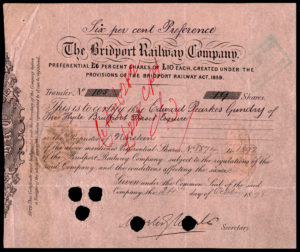 Six per cent Preference
The Bridport Railway Company.
PREFERENTIAL £6 PER CENT SHARES OF £10 EACH, CREATED UNDER THE
PROVISIONS OF THE BRIDPORT RAILWAY ACT, 1859.
Transfer No. 105 19 Shares.
This is to certify that Edward Pearkes Gundry of
The Hyde Bridport Dorset Esquire
is the Proprietor of Nineteen
of the above mentioned Preferential Shares No. 1874 to 1892
of the Bridport Railway Company subject to the regulations of the said
Company, and the conditions affecting the same.
Given under the Common Seal of the said
Company, the October
Secretary